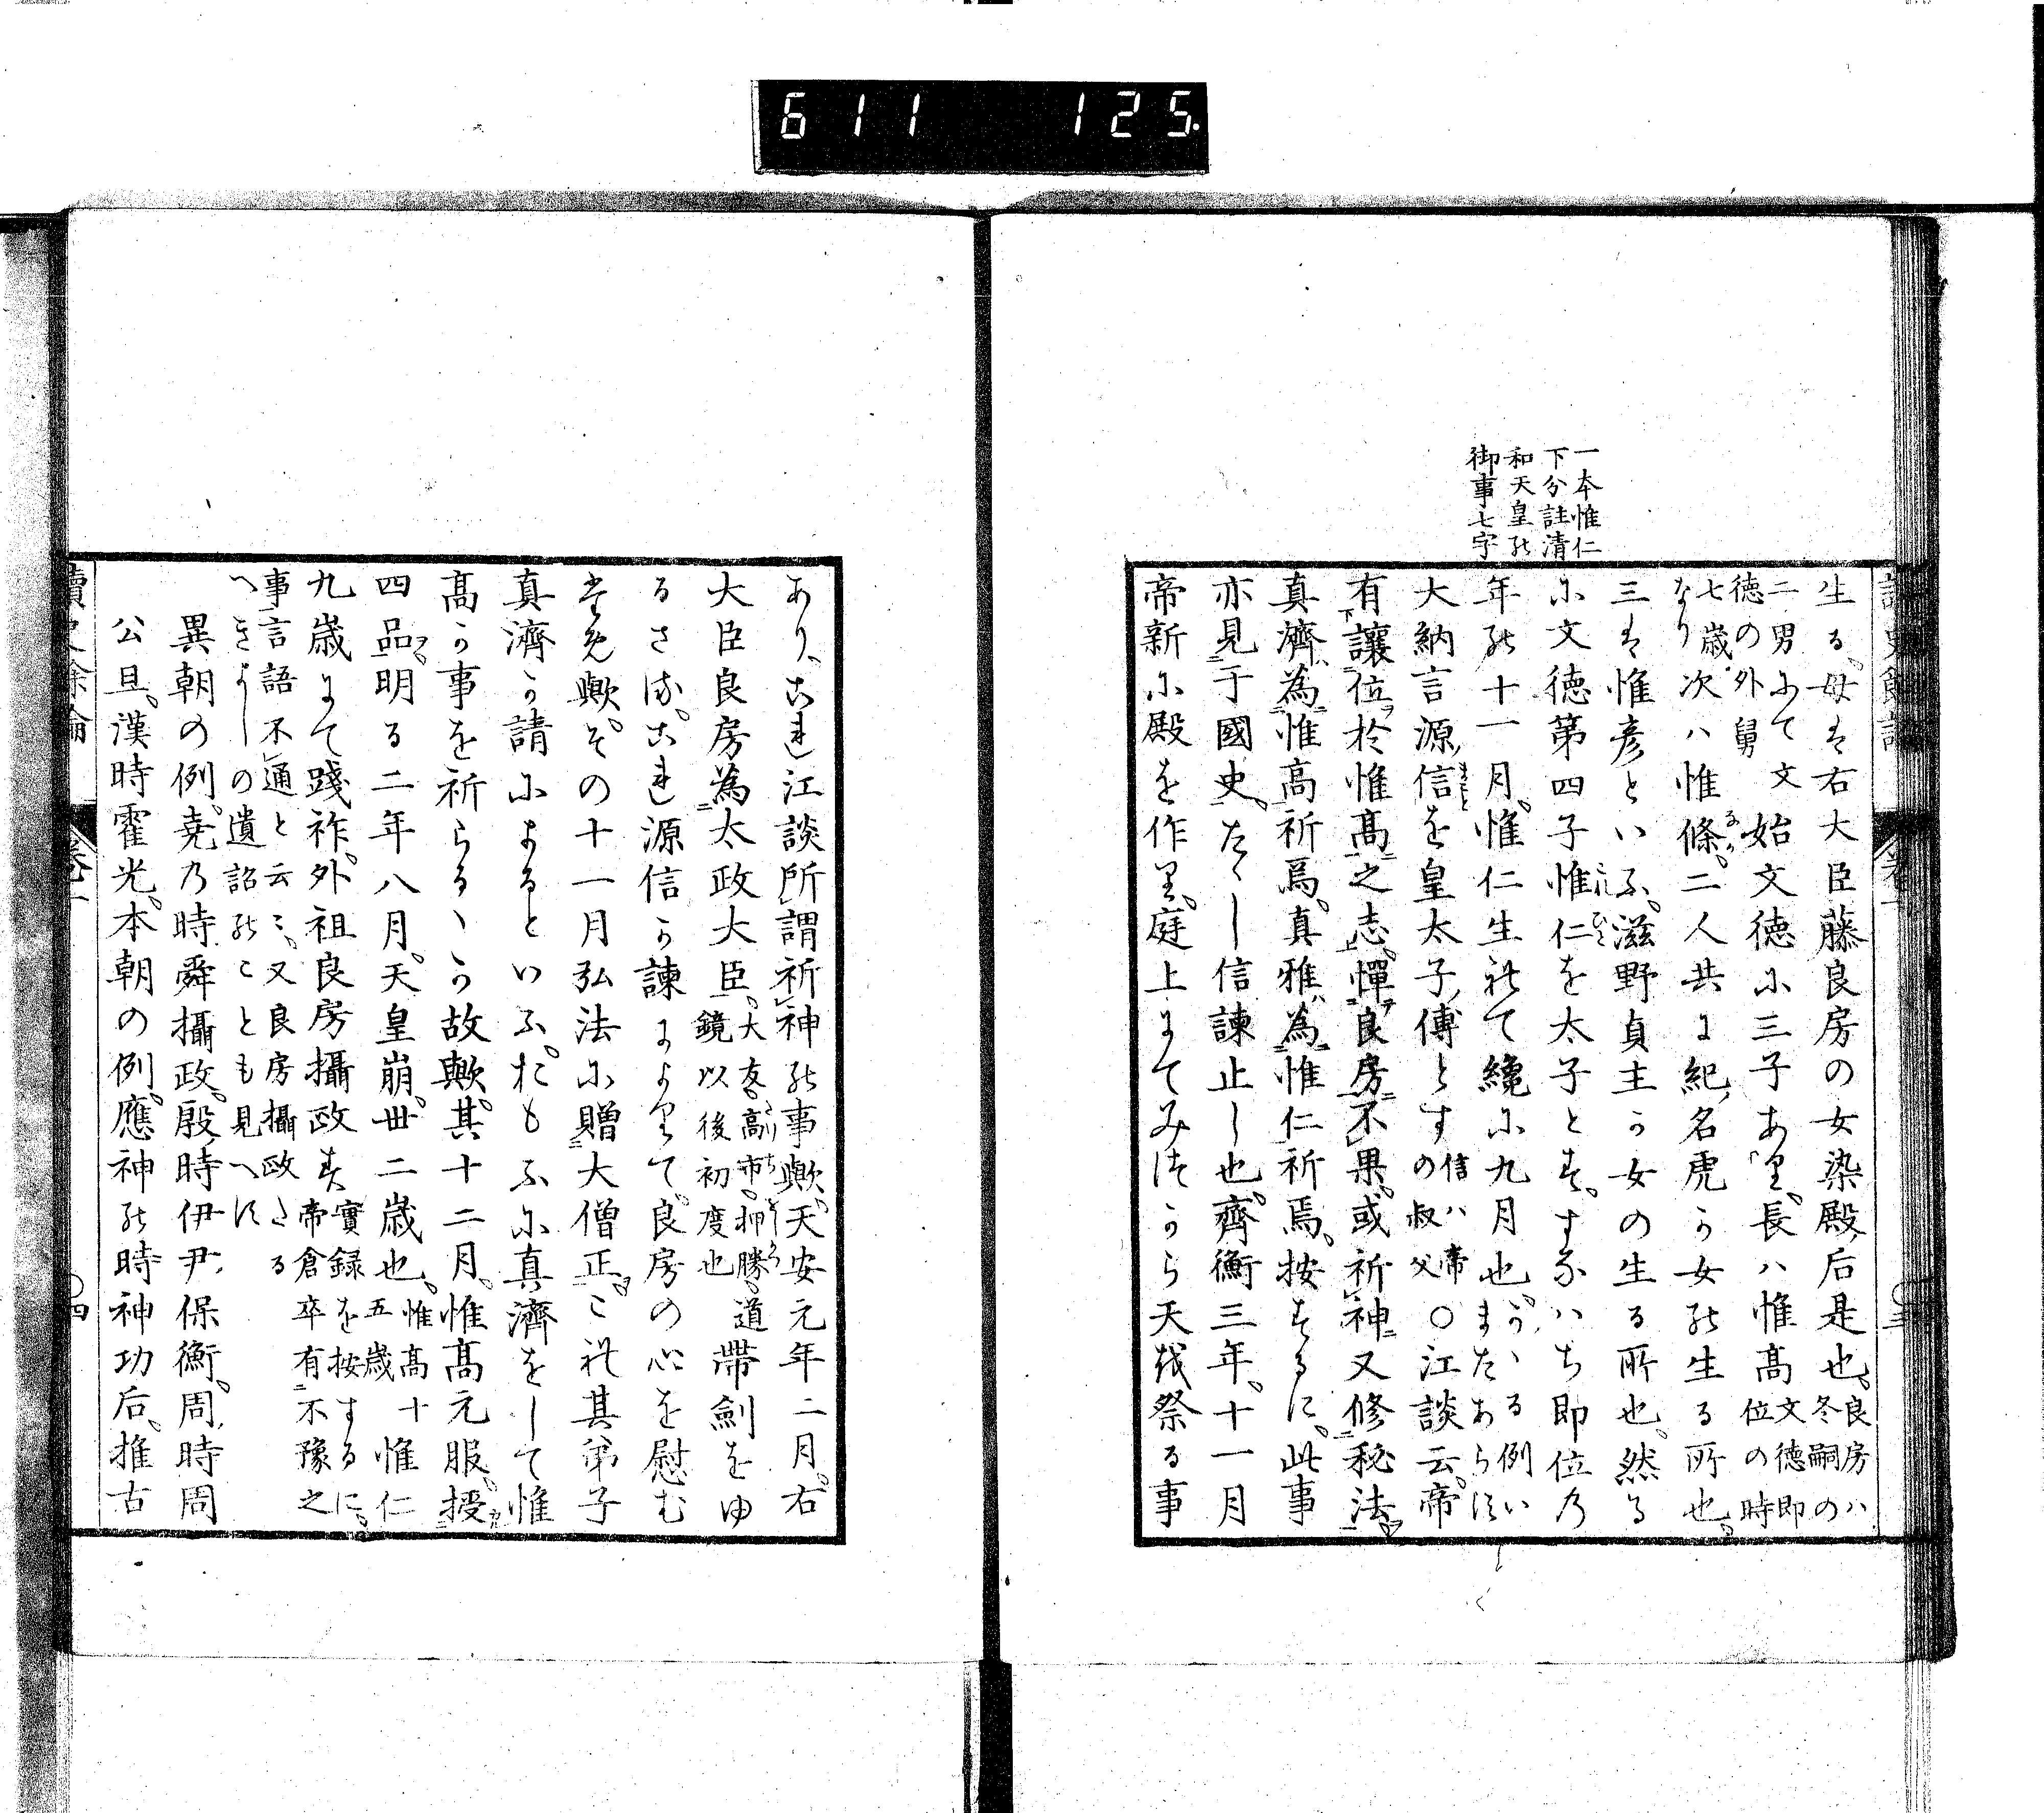 6 1 1 1 2 5.
一本惟仁
下分註清
和天皇の
御事七字
生る、母は右大臣藤良房の女染殿后是也、良房ハ冬嗣の
二男にて文徳の外舅 始文徳に三子あり、長ハ惟高 文徳即位の時
七歳なり 次ハ惟條、二人共に紀名虎か女の生る所也、
三は惟彦といふ、滋野貞主か女の生る所也、然る
に文徳第四子惟仁を太子とす、すなハち即位の
年の十一月、惟仁生れて纔に九月也、かゝる例いまたあらす
大納言源信を皇太子傅とす 信ハ帝の叔父 〇江談云、帝
有下讓位於惟高之志上、憚良房不果、或祈神又修秘法、
真濟為惟高祈焉、真雅為惟仁祈焉、按するに、此事
亦見于國史、たゝし信諫止し也、齊衡三年、十一月
帝新に殿を作り、庭上にてみつから天を祭る事
三
あり、これ江談所謂祈神の事歟、天安元年二月、右
大臣良房為太政大臣、大友、高市、押勝、道鏡以後初度也 帶劍をゆ
るさる、これ源信か諫によりて、良房の心を慰む
るため歟、その十一月弘法に贈大僧正、これ其弟子
真濟か請によるといふ、おもふに真濟をして惟
高か事を祈らるゝか故歟、其十二月、惟高元服、授
四品、明る二年八月、天皇崩、卅二歳也、惟高十五歳 惟仁
九歳にて踐祚、外祖良房攝政す 實録を按するに、帝倉卒有不豫之
事、言語不通と云々、又良房攝政たる
へきよしの遺詔のことも見へす
異朝の例、堯の時舜攝政、殷時伊尹、保衡、周時周
公旦、漢時霍光、本朝の例、應神の時神功后、推古
讀史餘論
卷一
四